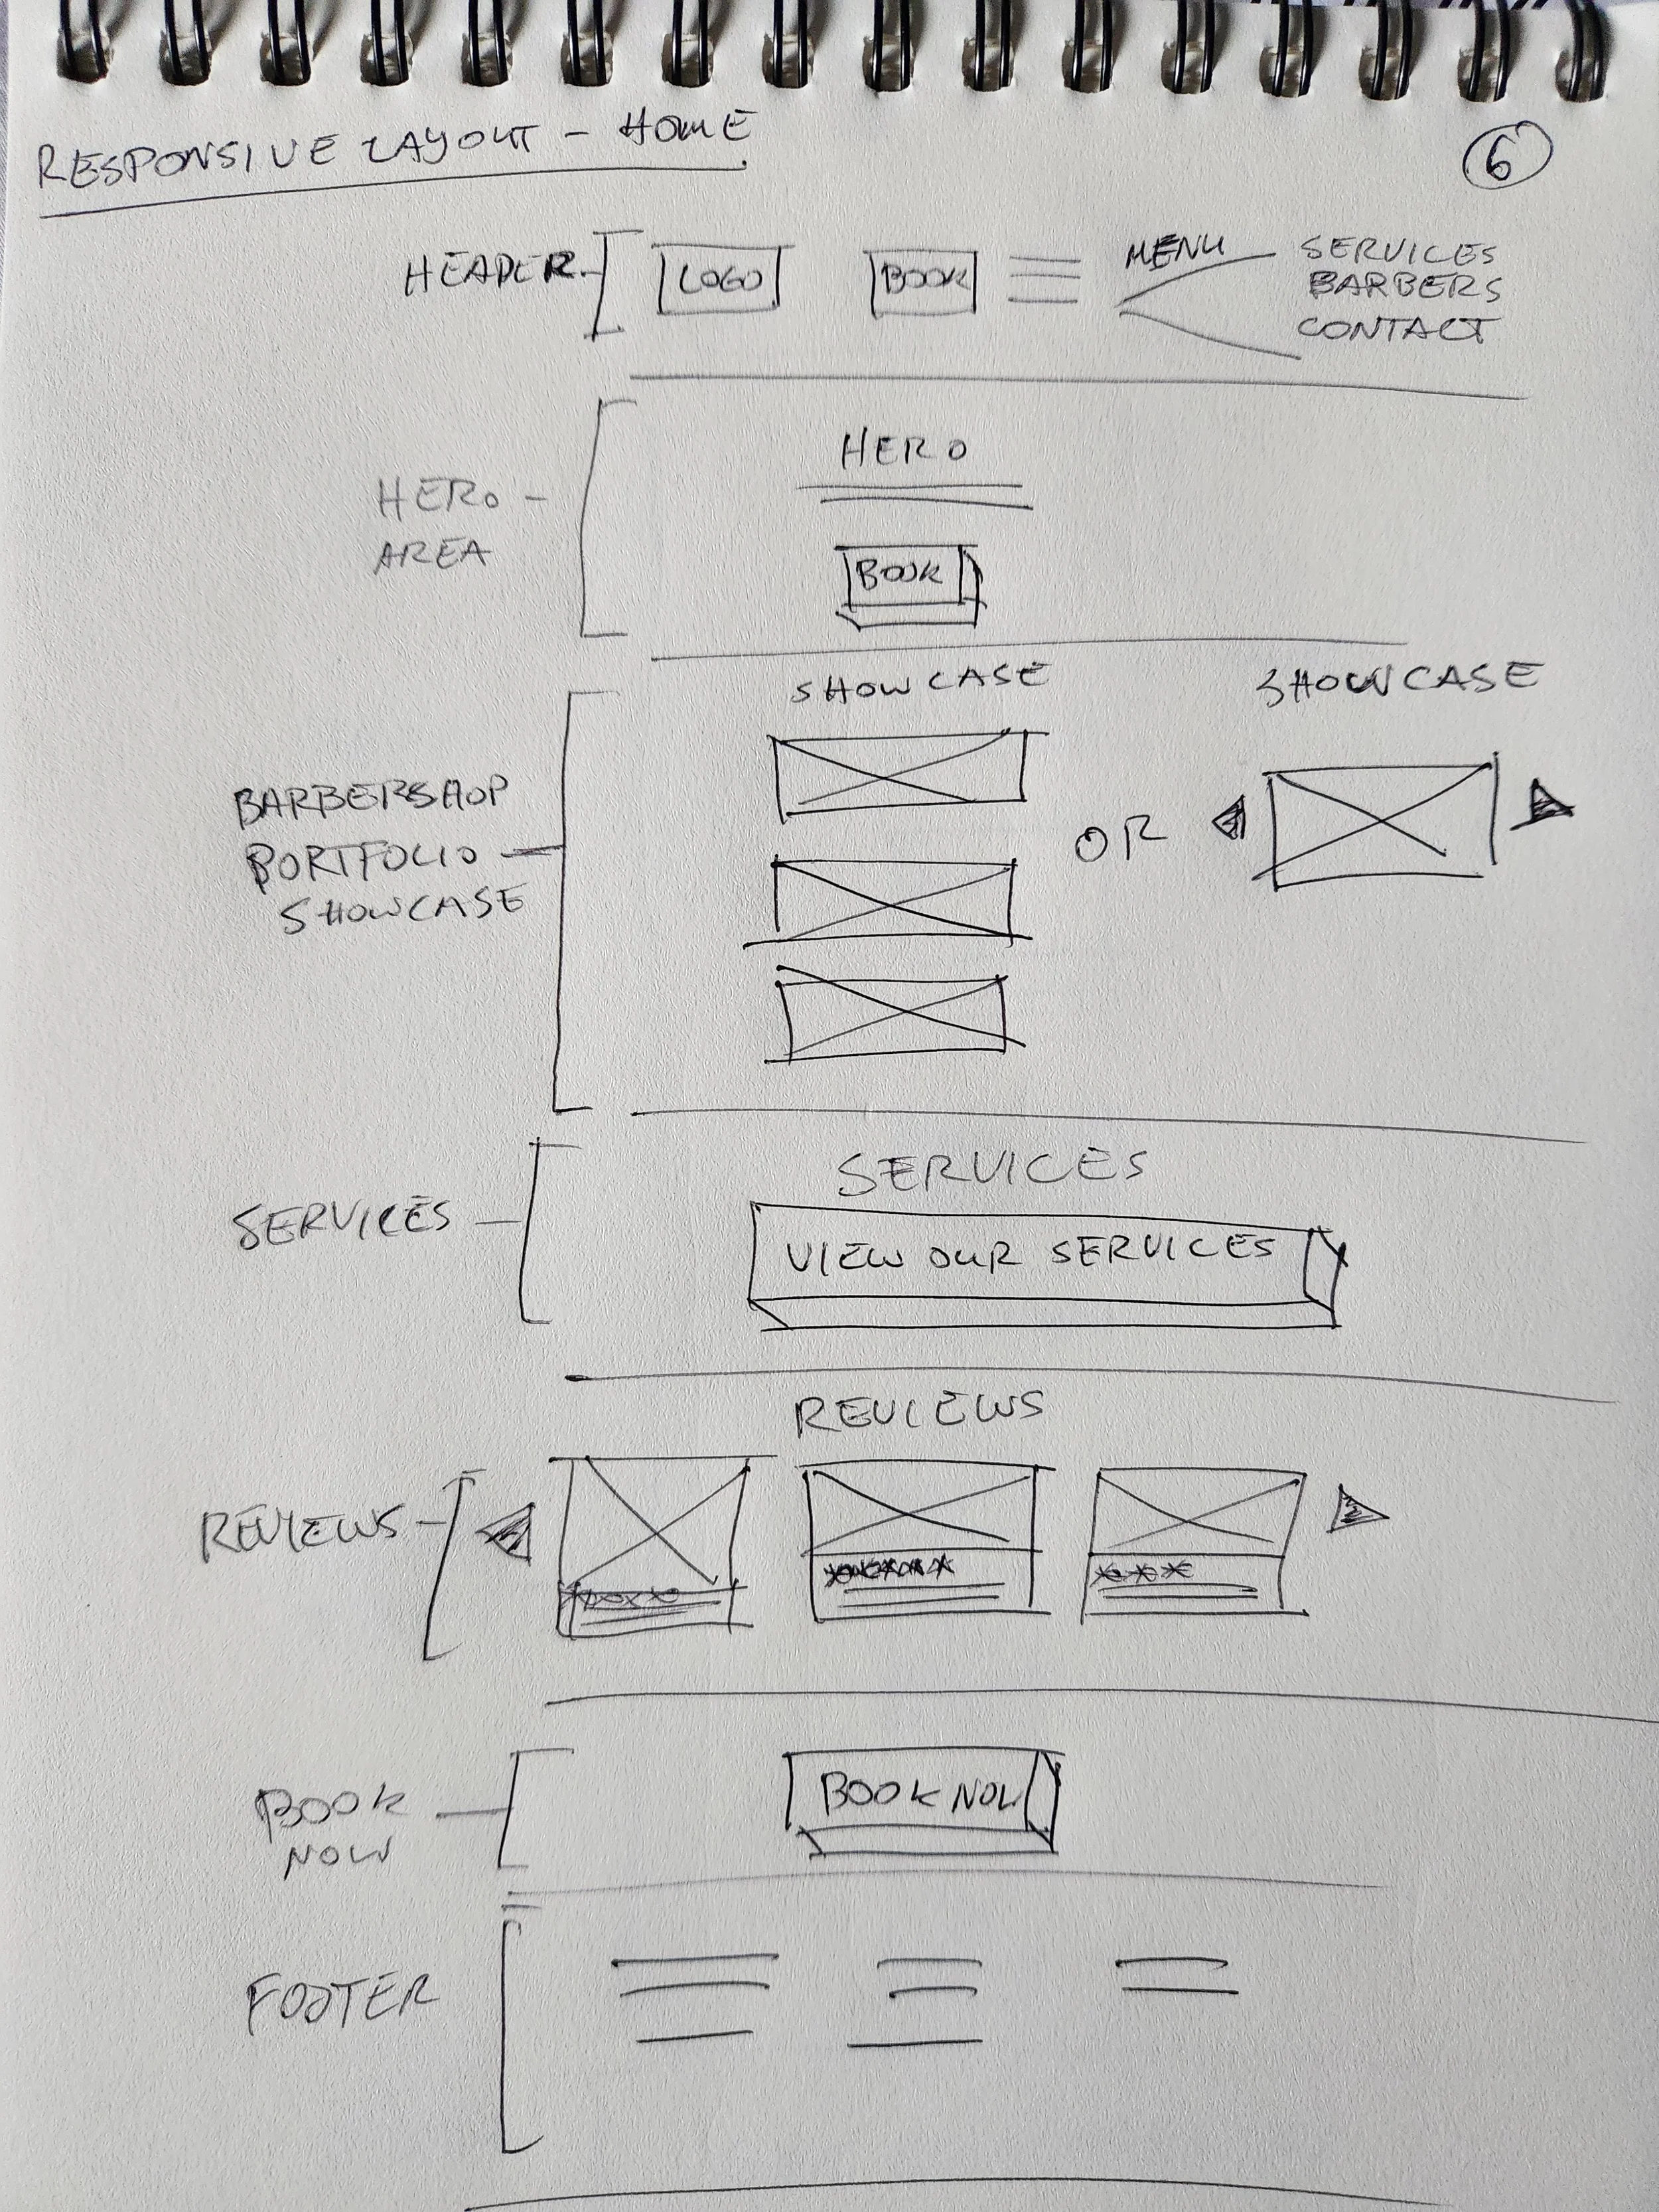 RESPONSIVE LAYOUT - HOME
6
HEADER
LOGO
BOOK
MENU
SERVICES
BARBERS
CONTACT
HERO
AREA
HERO
BOOK
BARBERSHOP
PORTFOLIO
SHOWCASE
SHOWCASE
OR
SHOWCASE
SERVICES
SERVICES
VIEW OUR SERVICES
REVIEWS
REVIEWS
BOOK
NOW
BOOK NOW
FOOTER